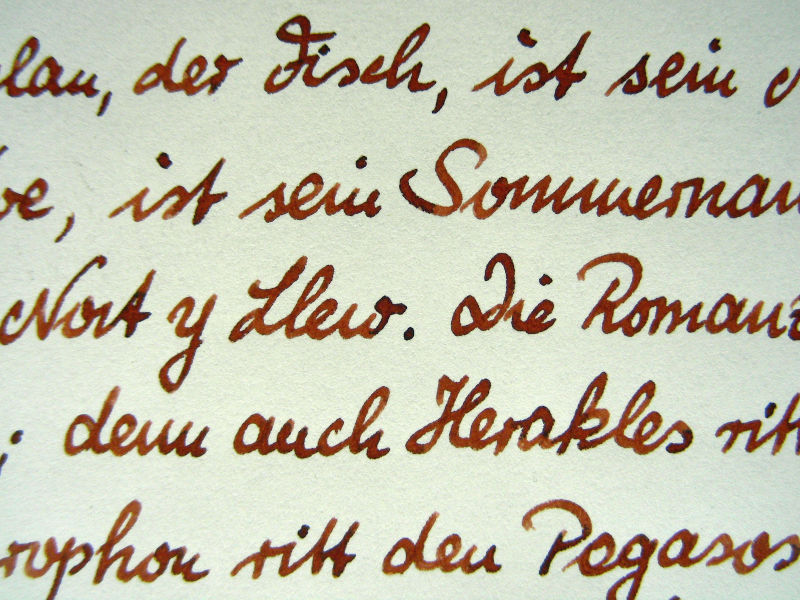 lan, der Fisch, ist sein
be, ist sein Sommernam
y Llew. Die Romanz
; denn auch Herakles ritt
rophon ritt den Pegasos